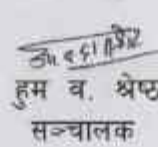 हुम व. श्रेष्ठ
सञ्चालक